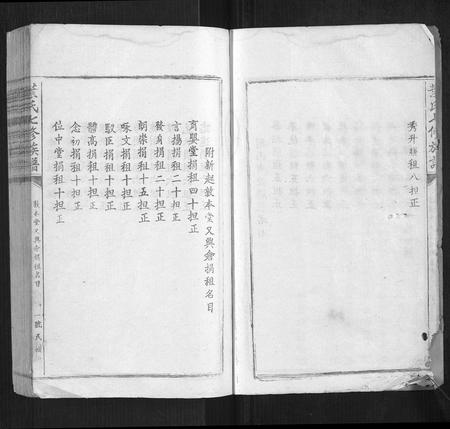 秀升捐租八担正
附新起敦本堂又興會捐租名目
育嬰堂捐租四十担正
言揚捐租二十担正
發身捐租二十担正
嗣崇捐租十五担正
咏文捐租十担正
馭臣捐租十担正
體高捐租十担正
念初捐租十担正
位中堂捐租十担正
葉氏七修族譜
敦本堂又興會捐租名目